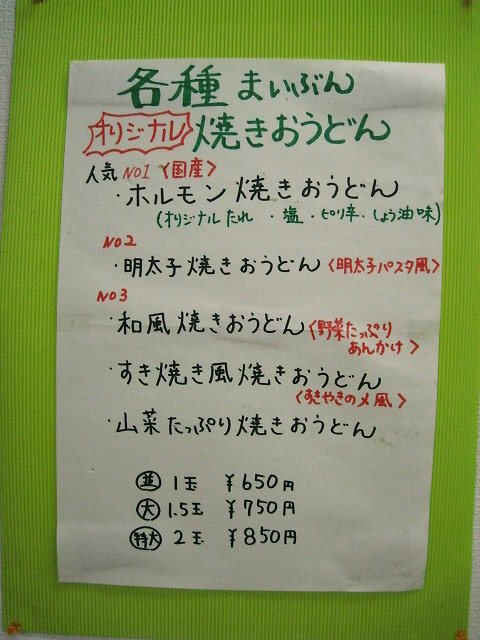 各種 まいぶん
オリジナル 焼きおうどん
人気 NO1 〈国産〉
・ホルモン焼きおうどん
(オリジナルたれ ・塩・ピリ辛・しょう油味)
NO2
・明太子焼きおうどん〈明太子パスタ風〉
NO3
・和風焼きおうどん〈野菜たっぷり
あんかけ〉
・すき焼き風焼きおうどん
〈すきやきの〆風〉
・山菜たっぷり焼きおうどん
並 1玉 ¥650円
大 1.5玉 ¥750円
特大 2玉 ¥850円